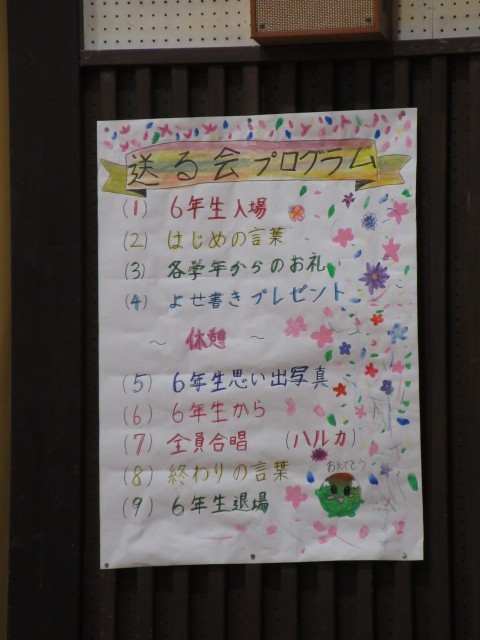 送る会プログラム
(1) 6年生入場
(2) はじめの言葉
(3) 各学年からのお礼
(4) よせ書きプレゼント
～ 休憩 ～
(5) 6年生思い出写真
(6) 6年生から
(7) 全員合唱 (ハルカ)
(8) 終わりの言葉
おめでとう
(9) 6年生退場